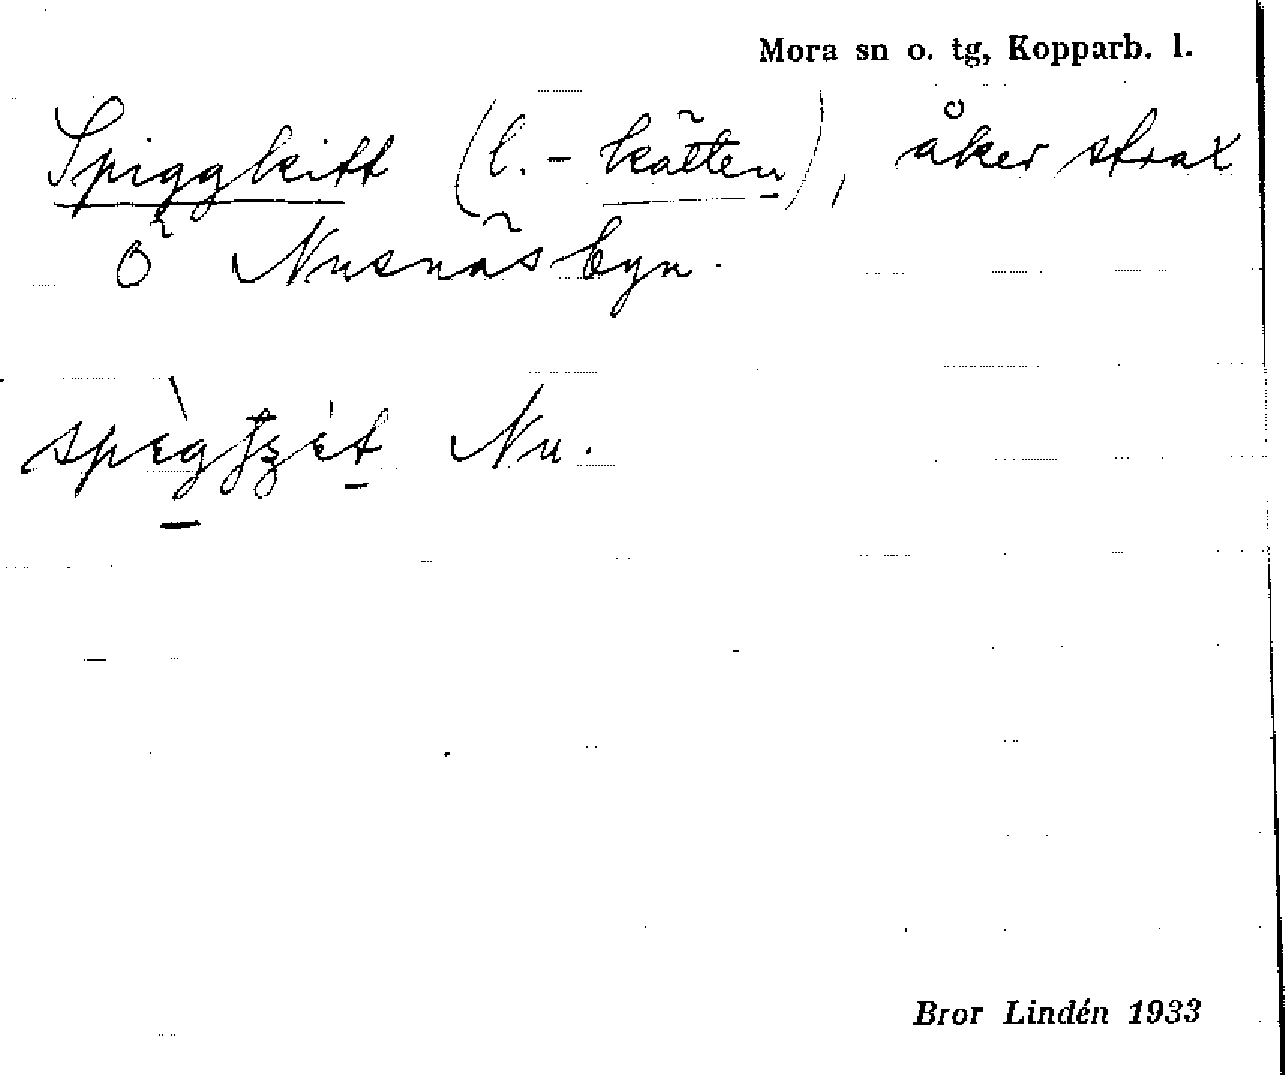 Mora sn o. tg, Kopparb. l.
Spiggkitt (l. -kätten), åker strax
ö Nusnäsbyn.
Nu.
Bror Lindén 1933